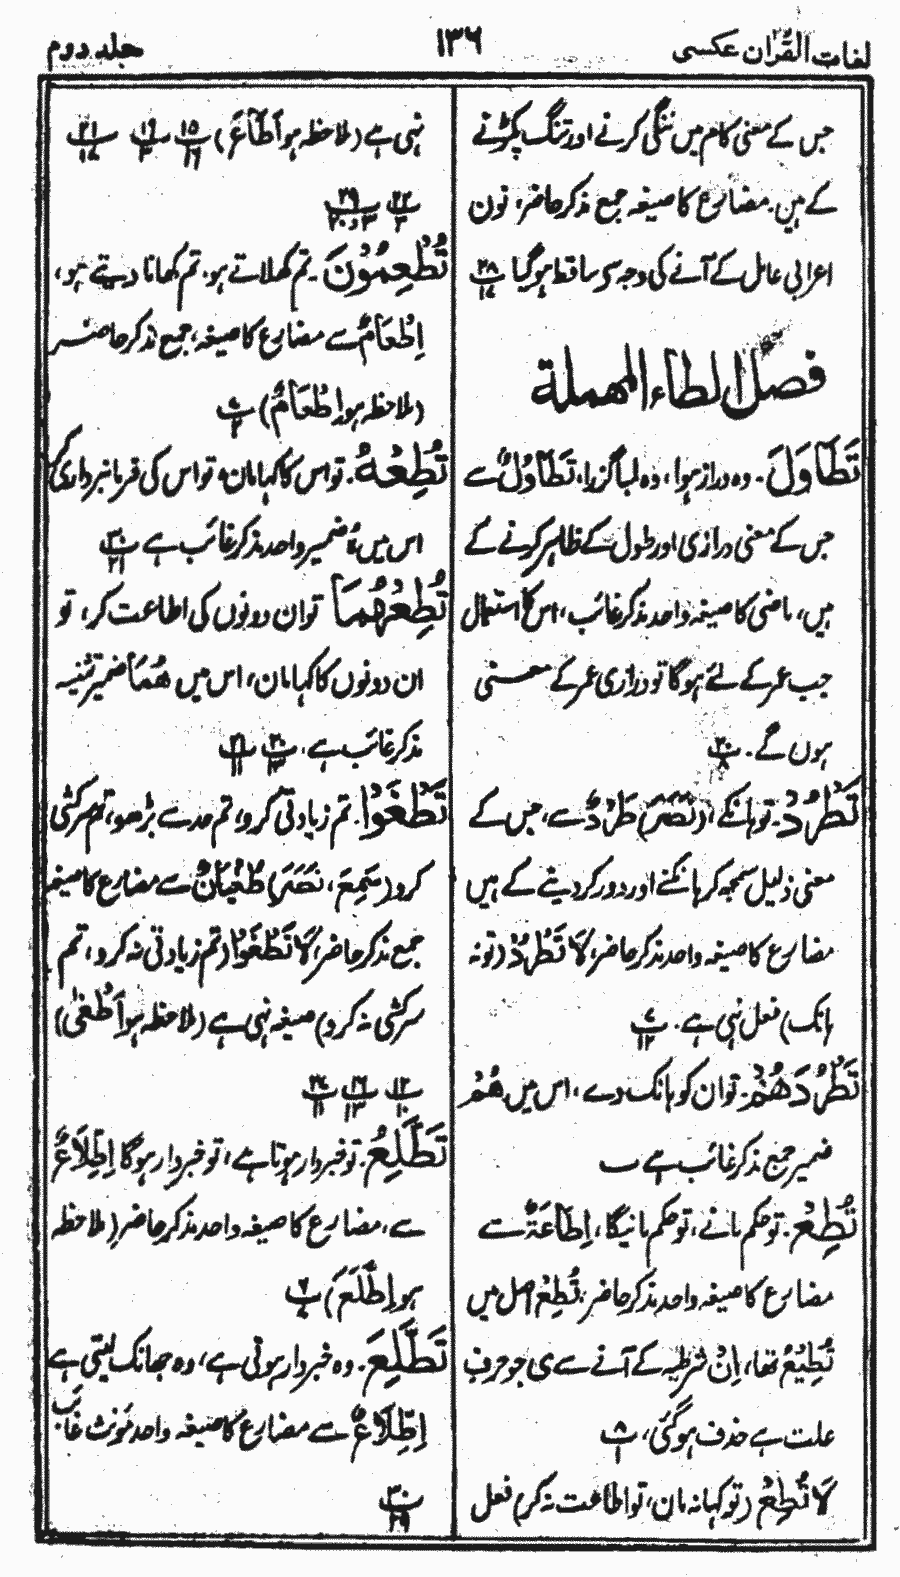 لغات القرآن عکسی
۱۳۶
جلد دوم
جس کے معنی کام میں تنگی کرنے اور تنگ پکڑنے
کے ہیں۔ مضارع کا صیغہ جمع مذکر حاضر، نون
اعرابی عامل کے آنے کی وجہ سے ساقط ہو گیا ۲۸/۱۷
فصل الطاء المهملة
تَطَاوَلَ۔ وہ دراز ہوا، وہ لمبا گزرا، تَطَاوُلٌ سے
جس کے معنی درازی اور طول کے ظاہر کرنے کے
ہیں، ماضی کا صیغہ واحد مذکر غائب، اس کا استعمال
جب عمر کے لئے ہوگا تو درازی عمر کے معنی
ہوں گے۔ ۲۰/۸
تَطْرُدْ۔ تو ہانکے، (نَصَرَ) طَرْدٌ سے، جس کے
معنی ذلیل سمجھ کر ہانکنے اور دور کر دینے کے ہیں
مضارع کا صیغہ واحد مذکر حاضر، لَا تَطْرُدْ (تو نہ
ہانک) فعل نہی ہے۔ ۷/۱۲
تَطْرُدَهُمْ۔ تو ان کو ہانک دے، اس میں هُمْ
ضمیر جمع مذکر غائب ہے
تُطِعْ۔ تو حکم مانے، تو حکم مانیگا، اِطَاعَةٌ سے
مضارع کا صیغہ واحد مذکر حاضر، تُطِعْ اصل میں
تُطِيْعُ تھا، اِنْ شرطیہ کے آنے سے ی جو حرف
علت ہے حذف ہو گئی، ۸/۱
لَا تُطِعْ (تو کہا نہ مان، تو اطاعت نہ کر) فعل
نہی ہے (ملاحظہ ہو اَطَاعَ) ۱۵/۱۶ ۱۹/۳ ۲۱/۱۷
۲۲/۳ ۲۹/۳ و ۲۰
تُطْعِمُوْنَ۔ تم کھلاتے ہو، تم کھانا دیتے ہو،
اِطْعَامٌ سے مضارع کا صیغہ، جمع مذکر حاضر
(ملاحظہ ہو اِطْعَامٌ) ۷/۲
تُطِعْهُ۔ تو اس کا کہا مان، تو اس کی فرمانبرداری کر
اس میں ہٗ ضمیر واحد مذکر غائب ہے ۳۰/۲۱
تُطِعْهُمَا تو ان دونوں کی اطاعت کر، تو
ان دونوں کا کہا مان، اس میں هُمَا ضمیر تثنیہ
مذکر غائب ہے، ۲۰/۱۳ ۲۱/۱۱
تَطْغَوْا۔ تم زیادتی کرو، تم حد سے بڑھو، تم سرکشی
کرو (سَمِعَ، نَصَرَ) طُغْيَانٌ سے مضارع کا صیغہ
جمع مذکر حاضر، لَا تَطْغَوْا (تم زیادتی نہ کرو، تم
سرکشی نہ کرو) صیغہ نہی ہے (ملاحظہ ہو اَطْغٰی)
۱۲/۱۰ ۱۶/۱۳ ۲۷/۱۱
تَطَّلِعُ۔ تو خبردار ہوتا ہے، تو خبردار ہوگا اِطِّلَاعٌ
سے، مضارع کا صیغہ واحد مذکر حاضر (ملاحظہ
ہو اِطَّلَعَ)
تَطَّلِعُ۔ وہ خبردار ہوتی ہے، وہ جھانک لیتی ہے
اِطِّلَاعٌ سے مضارع کا صیغہ واحد مؤنث غائب
۳۰/۲۹